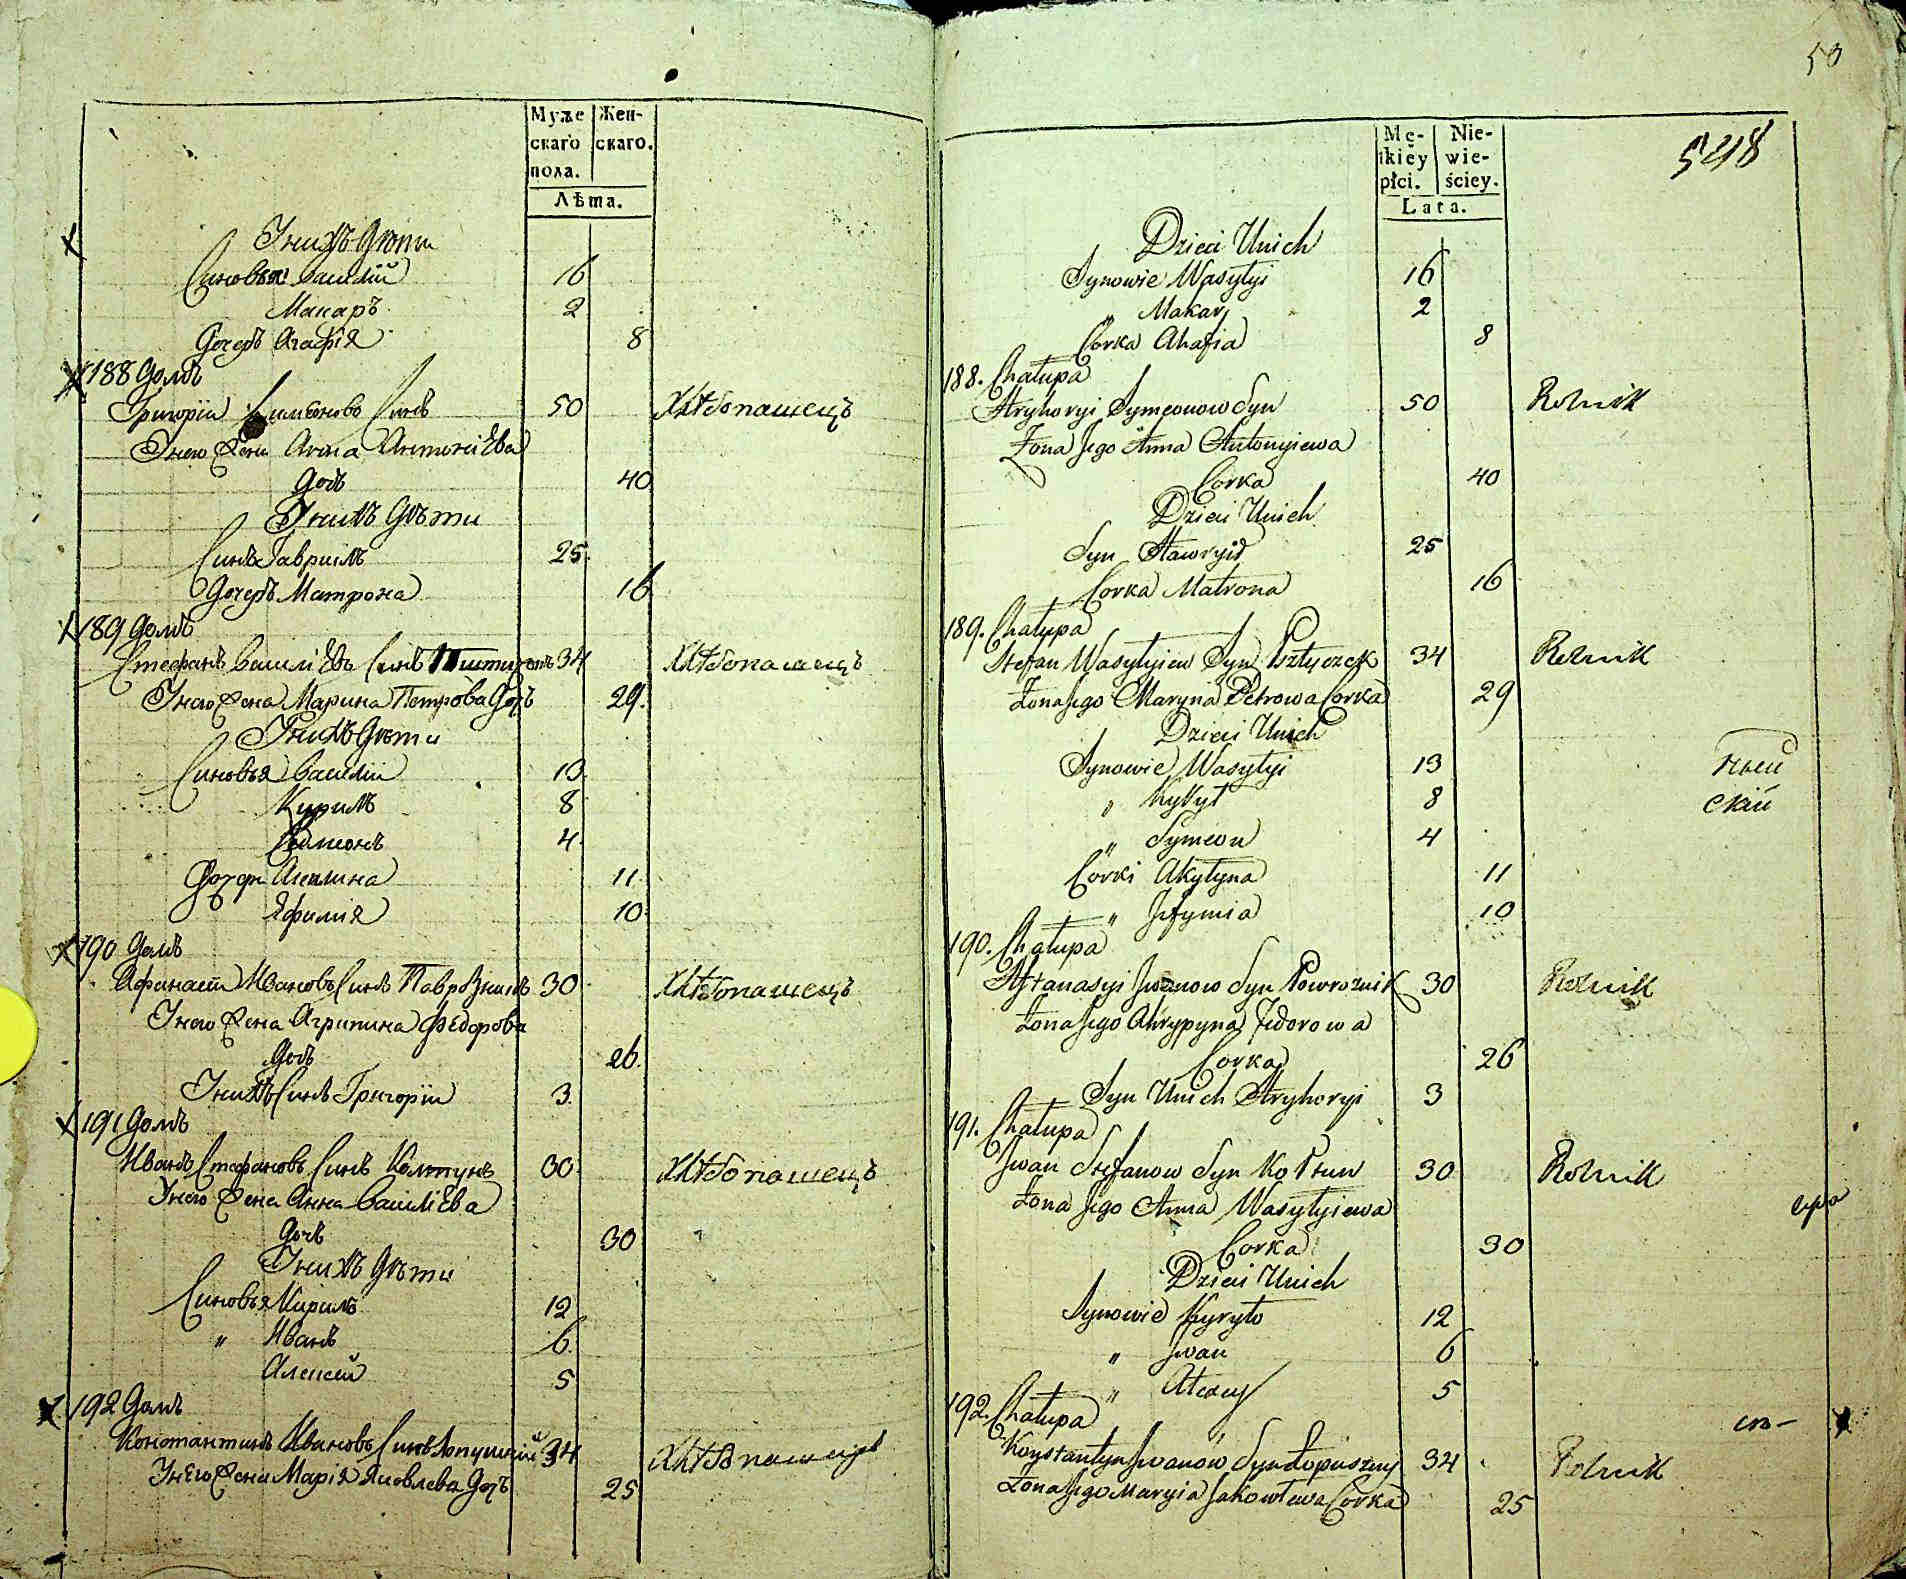 Муже
скаго
пола.
Жен-
скаго.
Лѣта.
У нихъ Дѣти
Синовья Василій 16
Макаръ 2
Дочерь Агафія 8
188 Домъ
Григорій Симеоновъ Синъ 50 Хлѣбопашецъ
У него Жена Анна Антоніева
Дочь 40
У нихъ Дѣти
Синъ Гавриилъ 25
Дочерь Матрона 16
189 Домъ
Стефанъ Василіевъ Синъ 34 Хлѣбопашецъ
У него Жена Марина Петрова Дочь 29.
У нихъ Дѣти
Синовья Василій 13
Кирилъ 8
Симеонъ 4
Дочери Акилина 11
Яфимія 10
190 Домъ
Афанасій Ивановъ Синъ Павров­никъ 30 Хлѣбопашецъ
У него Жена Агрипина Федорова
Дочь 26
У нихъ Синъ Григорій 3
191 Домъ
Иванъ Стефановъ Синъ Колтунъ 30 Хлѣбопашецъ
У него Жена Анна Василіева
Дочь 30
У нихъ Дѣти
Синовья Кирилъ 12
" Иванъ 6
Алексей 5
192 Домъ
Константинъ Ивановъ Синъ 34 Хлѣбопашецъ
У него Жена Марія Яковлева Дочь 25
50
548
Mę-
ſkiéy
płci.
Nie-
wie-
ściey.
Lata.
Dzieci Unich
Synowie Wasylyi 16
" Makar 2
Corka Ahafia 8
188. Chałupa
Hryhoryi Symeonow Syn 50 Rolnik
Żona Jego Anna Antonyiewa
Corka 40
Dzieci Unich
Syn Hawryił 25
Corka Matrona 16
189. Chałupa
Stefan Wasylyiew Syn Psztyczek 34 Rolnik
Żona Jego Maryna Petrowa Corka 29
Dzieci Unich
Synowie Wasylyi 13
" Kyrył 8
" Symeon 4
Corki Akylyna 11
" Jefymia 10
190. Chałupa
Aftanasyi Jwanow Syn Powroznik 30 Rolnik
Żona Jego Ahrypyna Fedorowa
Corka 26
Syn Unich Hryhoryi 3
191. Chałupa
Jwan Stefanow Syn Kołtun 30 Rolnik
Żona Jego Anna Wasylyiewa
Corka 30
Dzieci Unich
Synowie Kyryło 12
" Jwan 6
" Ałexey 5
192. Chałupa
Konstantyn Jwanow Syn Łopuszny 34 Rolnik
Żona Jego Maryia Jakowlewa Corka 25